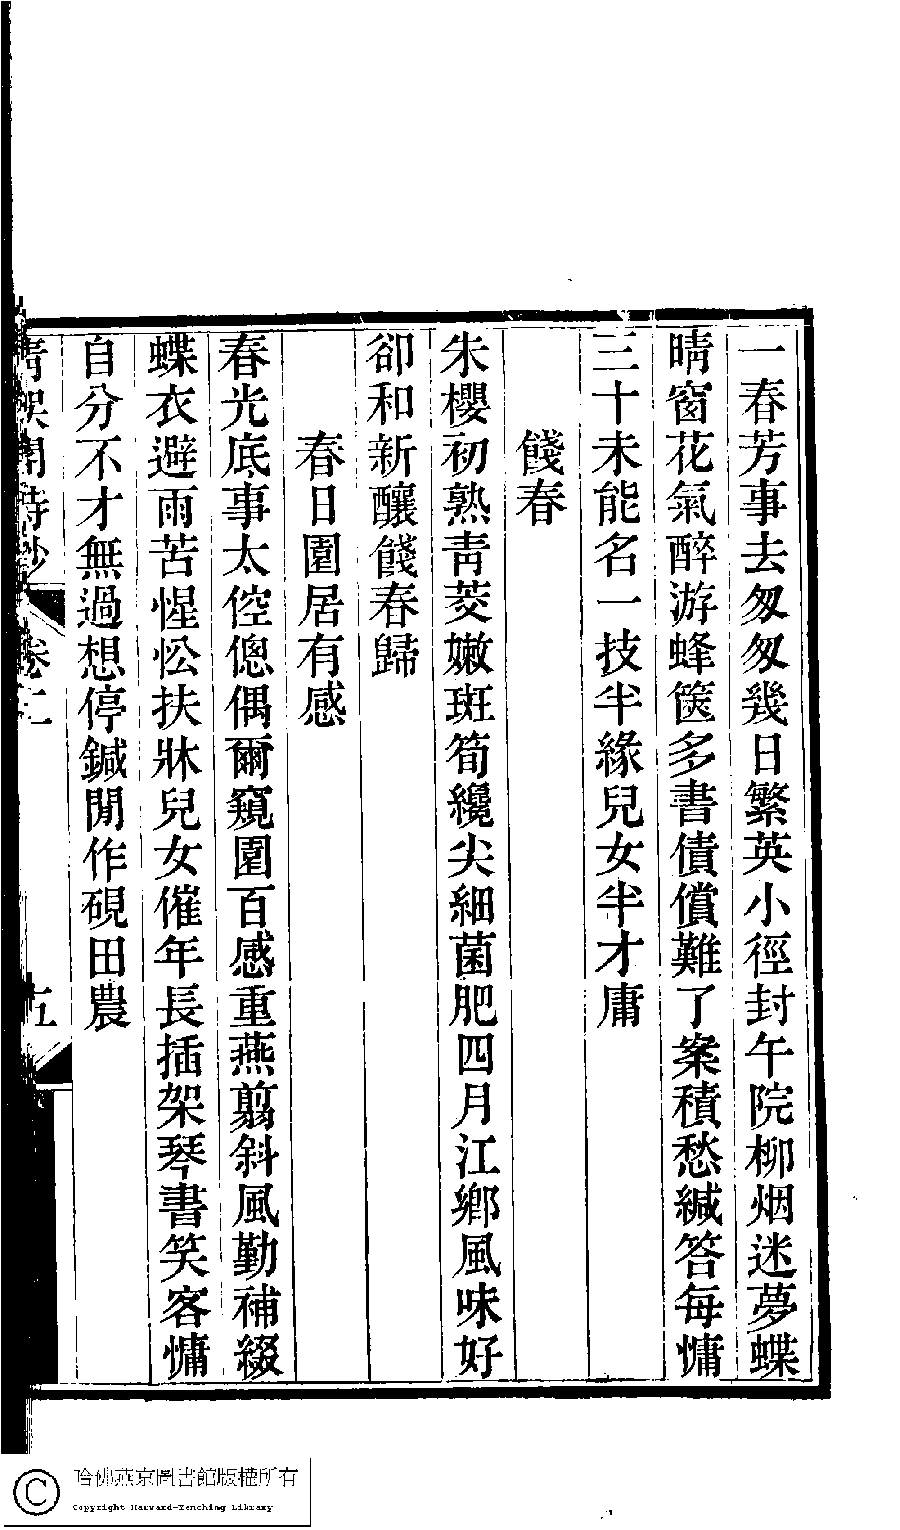 一春芳事去匆匆幾日繁英小徑封午院柳烟迷夢蝶
晴窗花氣醉游蜂篋多書債償難了案積愁緘答每慵
三十未能名一技半緣兒女半才庸
餞春
朱櫻初熟靑茭嫩斑筍纔尖細菌肥四月江鄉風味好
卻和新釀餞春歸
春日園居有感
春光底事太倥傯偶爾窺園百感重燕翦斜風勤補綴
蝶衣避雨苦惺忪扶牀兒女催年長插架琴書笑客慵
自分不才無過想停鍼閒作硯田農
卷二
五
哈佛燕京圖書館版權所有
Copyright Harvard-Yenching Library